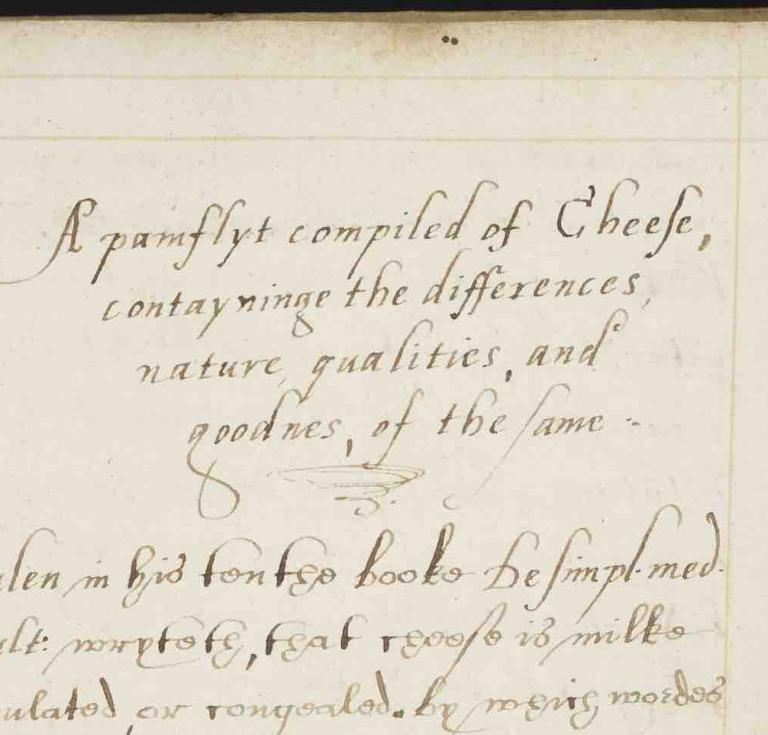 A pamflyt compiled of Cheese,
contayninge the differences,
nature, qualities, and
goodnes, of the same
len in his tenthe booke De simpl. med.
lt: wryteth, that cheese is milke
ulated or congealed. by which wordes